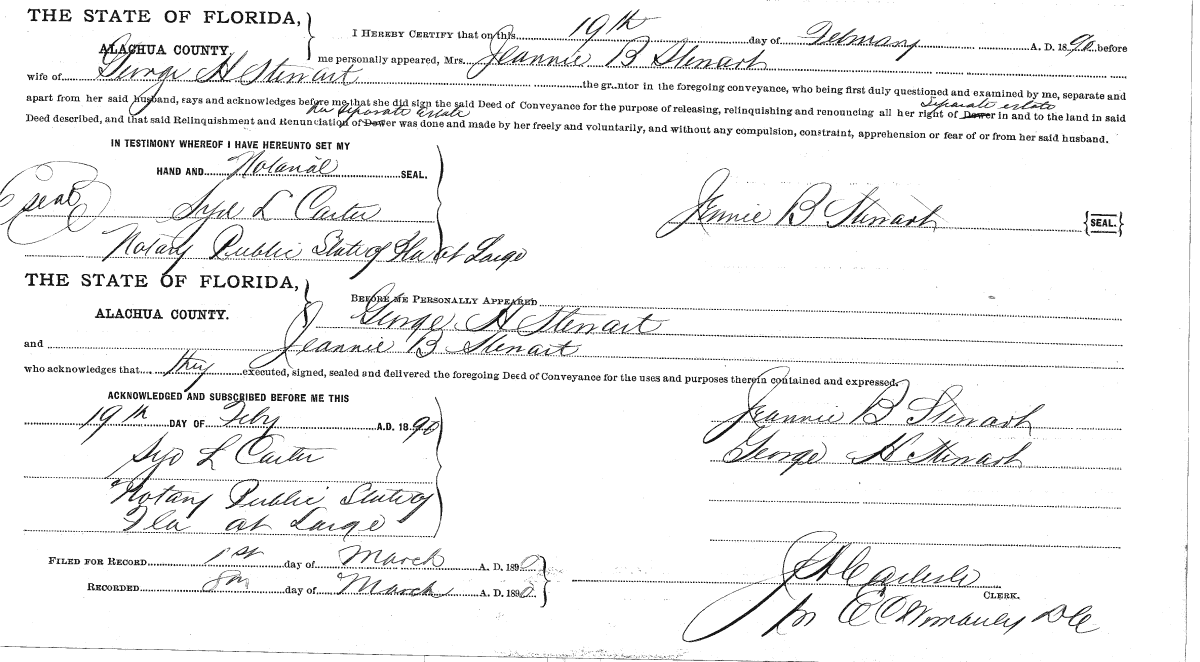 THE STATE OF FLORIDA,
ALACHUA COUNTY.
I HEREBY CERTIFY that on this 19th day of February A. D. 1890 before
me personally appeared, Mrs. Jeannie B Stewart
wife of George H Stewart the gr..ntor in the foregoing conveyance, who being first duly questioned and examined by me, separate and
separate estate
apart from her said husband, says and acknowledges before me that she did sign the said Deed of Conveyance for the purpose of releasing, relinquishing and renouncing all her right of Dower in and to the land in said
her separate estate
Deed described, and that said Relinquishment and Renunciation of Dower was done and made by her freely and voluntarily, and without any compulsion, constraint, apprehension or fear of or from her said husband.
IN TESTIMONY WHEREOF I HAVE HEREUNTO SET MY
HAND AND Notarial SEAL.
seal
Syd L Carter
Jennie B Stewart {SEAL.}
Notary Public State of Fla at Large
THE STATE OF FLORIDA,
ALACHUA COUNTY.
BEFORE ME PERSONALLY APPEARED
George H Stewart
and Jeannie B Stewart
who acknowledges that they executed, signed, sealed and delivered the foregoing Deed of Conveyance for the uses and purposes therein contained and expressed.
ACKNOWLEDGED AND SUBSCRIBED BEFORE ME THIS
19th DAY OF Feby A.D. 1890
Jeannie B Stewart
Syd L Carter
George H Stewart
Notary Public State of
Fla at Large
FILED FOR RECORD 1st day of March A. D. 1890
RECORDED 8th day of March A. D. 1890
Carlisle
CLERK.
DC